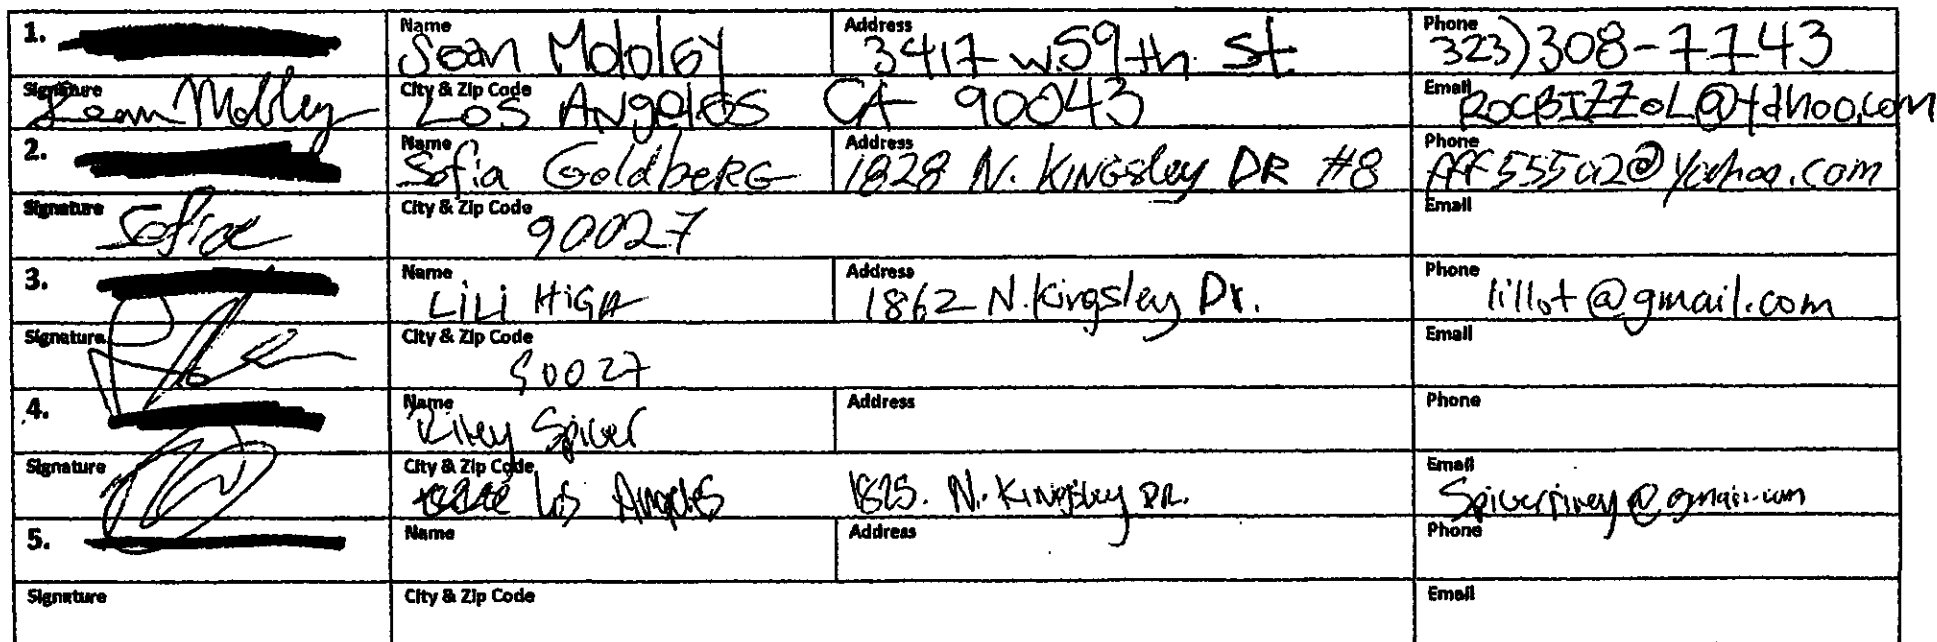 1. Name Sean Mobley Address 3417 w.59th St. Phone 323)308-7743
Signature Sean Mobley City & Zip Code Los Angeles CA 90043 Email ROCBIZZOL@Yahoo.com
2. Name Sofia GoldbeRG Address 1828 N. KINGsley DR #8 Phone fff555a2@yahoo.com
Signature Sofia City & Zip Code 90027 Email
3. Name LiLi HiGA Address 1862 N. Kingsley Dr. Phone lillot@gmail.com
Signature City & Zip Code 90027 Email
4. Name Riley Spiver Address Phone
Signature City & Zip Code Los Angeles 1825. N. Kingsley DR. Email Spiverriley@gmail.com
5. Name Address Phone
Signature City & Zip Code Email